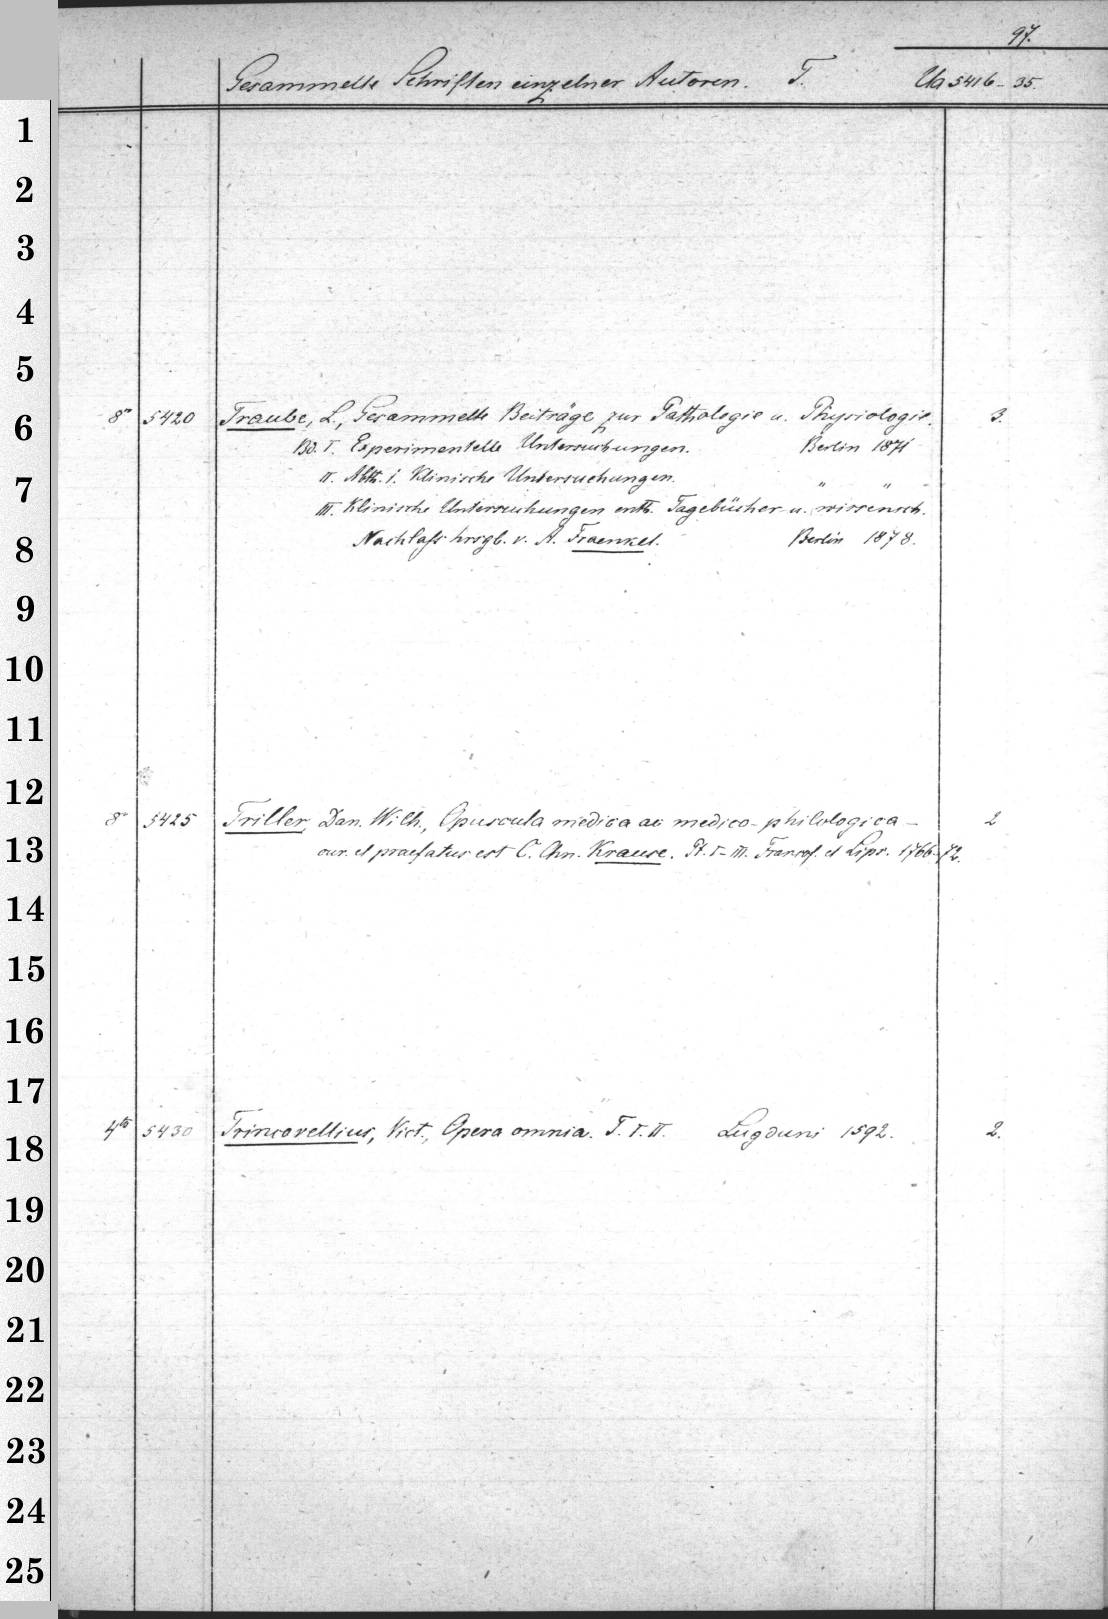 97.
Gesammelte Schriften einzelner Autoren. T. Ua 5416-35.
1
2
3
4
5
6
8° 5420 Traube, L., Gesammelte Beiträge zur Pathologie u. Physiologie. 3.
Bd. I. Experimentelle Untersuchungen. Berlin 1871
7
II. Abth. i. Klinische Untersuchungen. " "
III. Klinische Untersuchungen enth. Tagebücher u. wissensch.
8
Nachlaß hrsgb. v. A. Fraenkel. Berlin 1878.
9
10
11
12
8° 5425 Triller, Dan. Wilh., Opuscula medica ac medico-philologica – 2
13
cur. et praefatus est C. Chn. Krause. Pt. I-III. Francof. et Lips. 1766-72.
14
15
16
17
4to 5430 Trincavellius, Vict., Opera omnia. T. I. II. Lugduni 1592. 2.
18
19
20
21
22
23
24
25